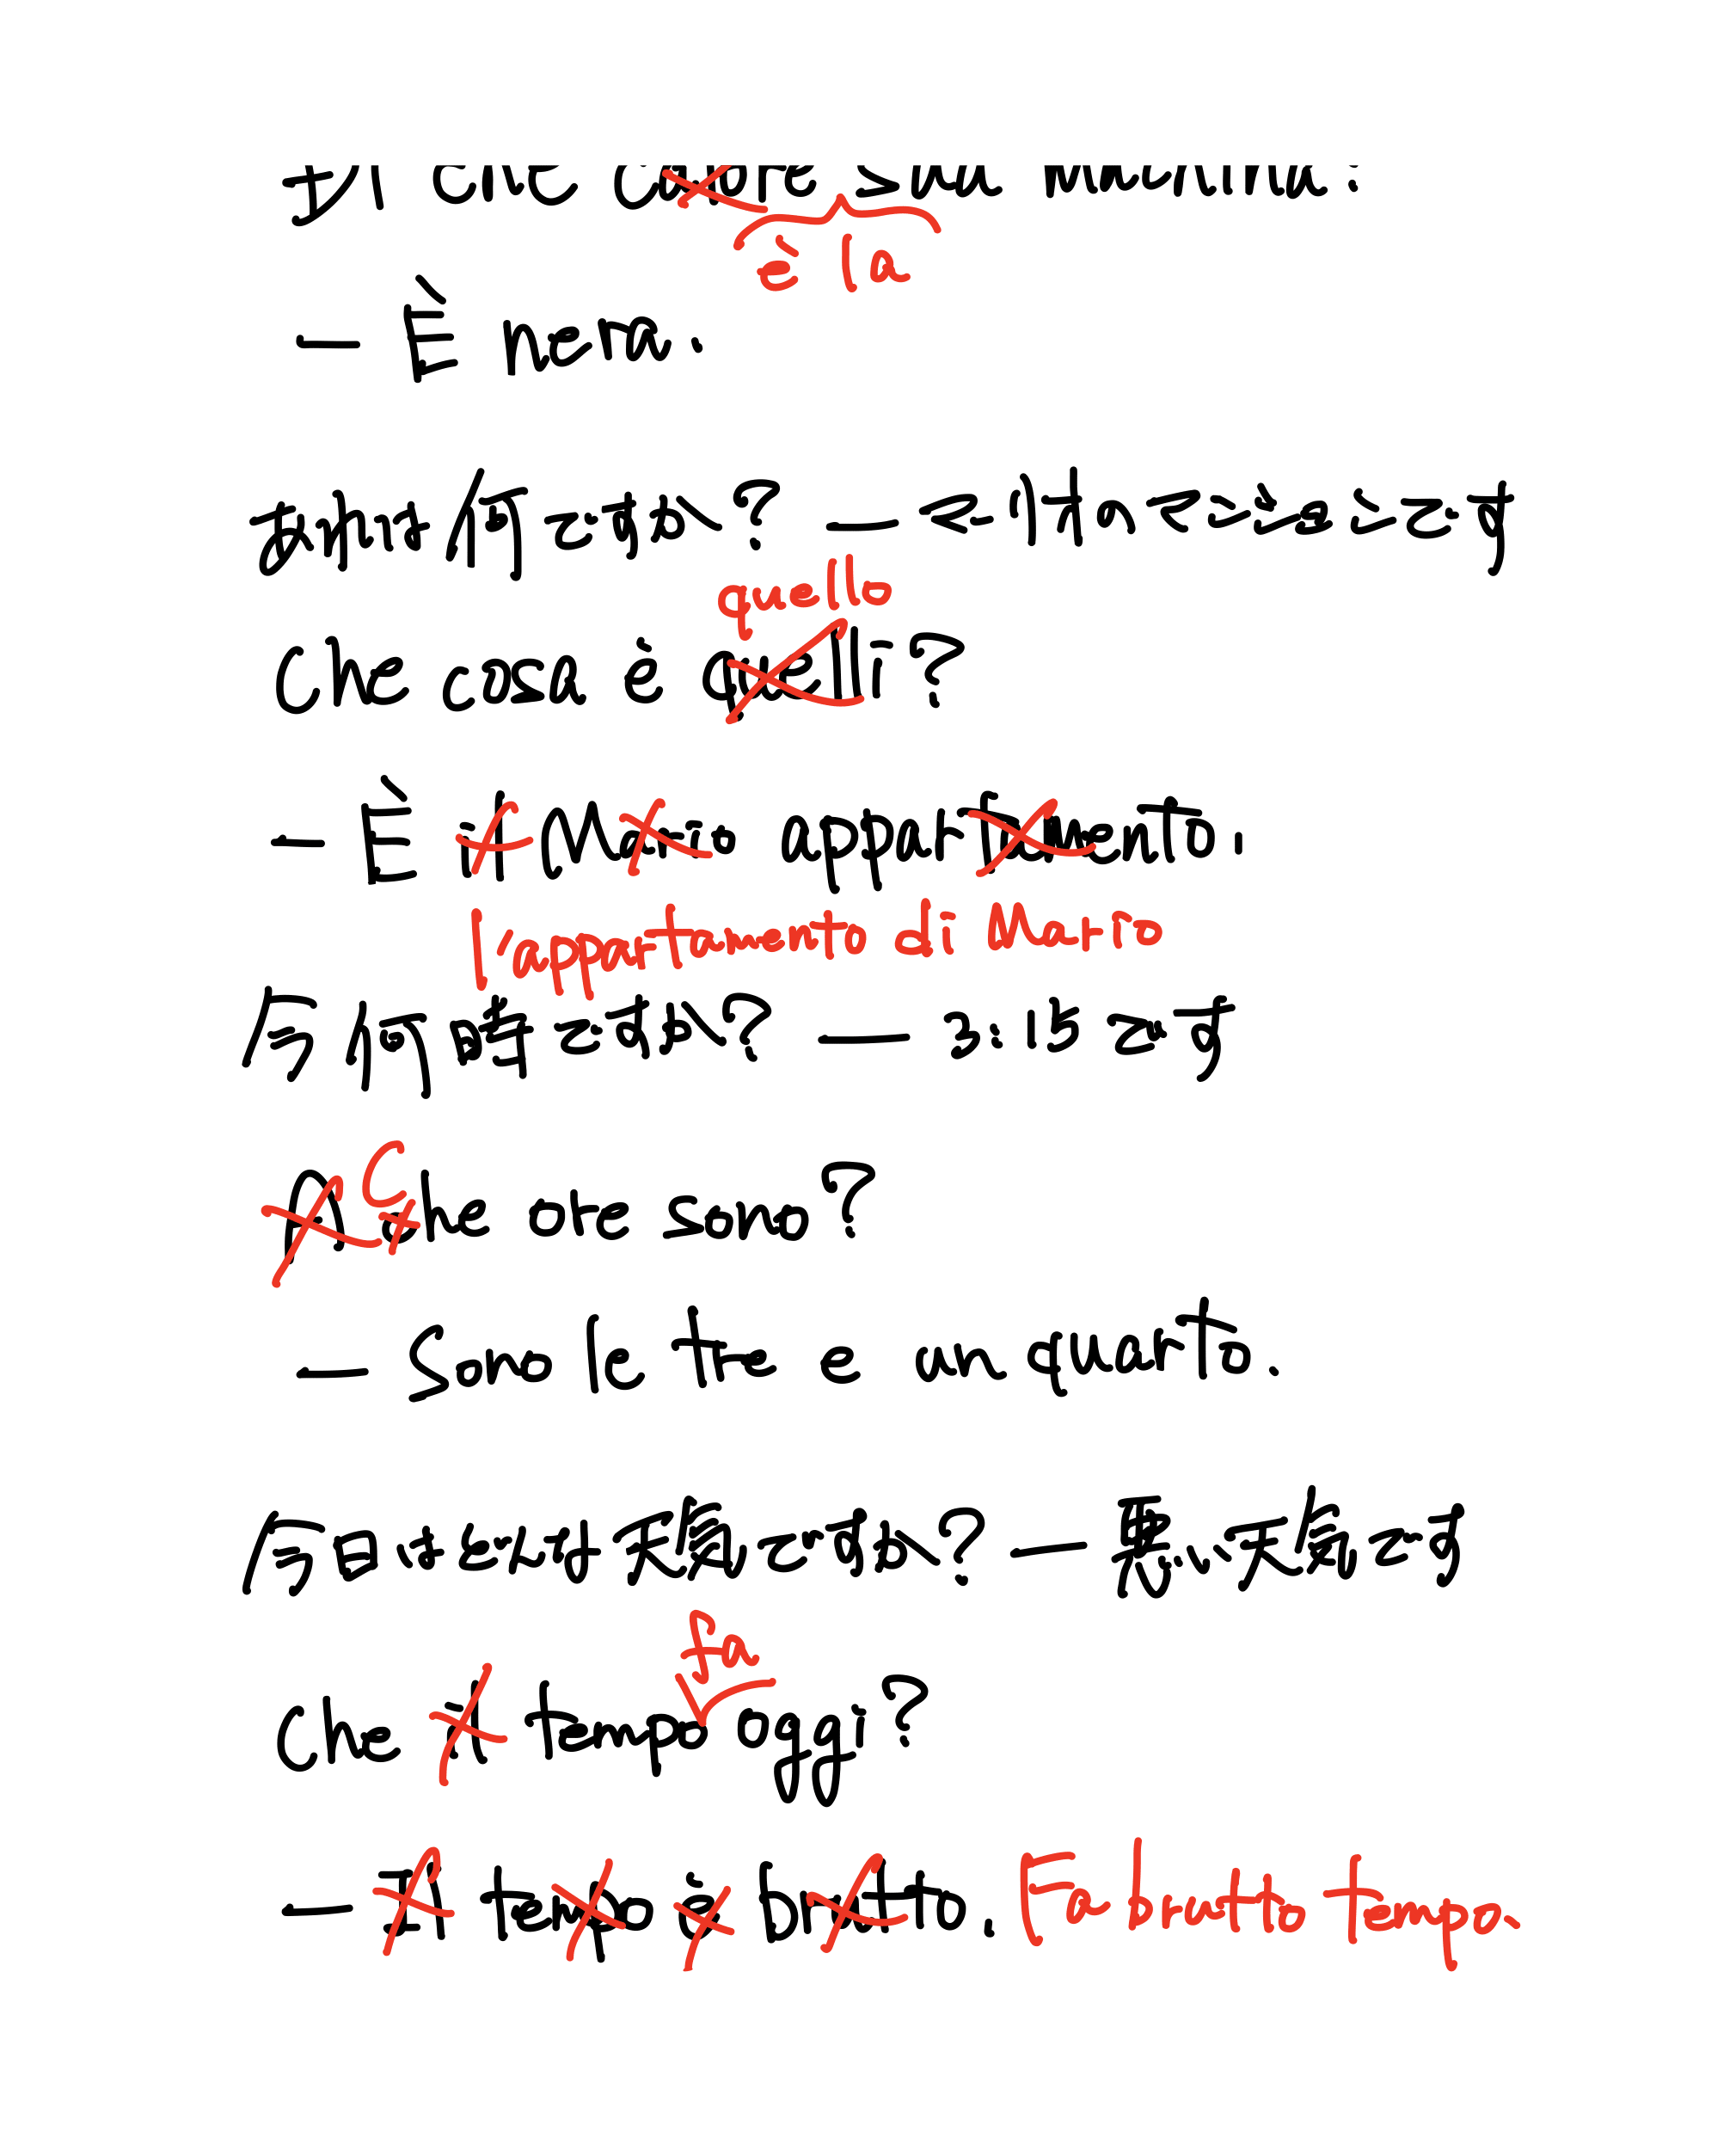 Di che colore sua macchina?
è la
- È nera.
あれは何ですか? - マリオのマンションです
quello
Che cosa è quelli?
- È il Mario appartamento.
l'appartamento di Mario
今何時ですか? - 3:15です
C
A che ore sono?
- Sono le tre e un quarto.
今日はどんな天気ですか? - 悪い天気です
fa
Che il tempo oggi?
- Il tempo è brutto. Fa brutto tempo.